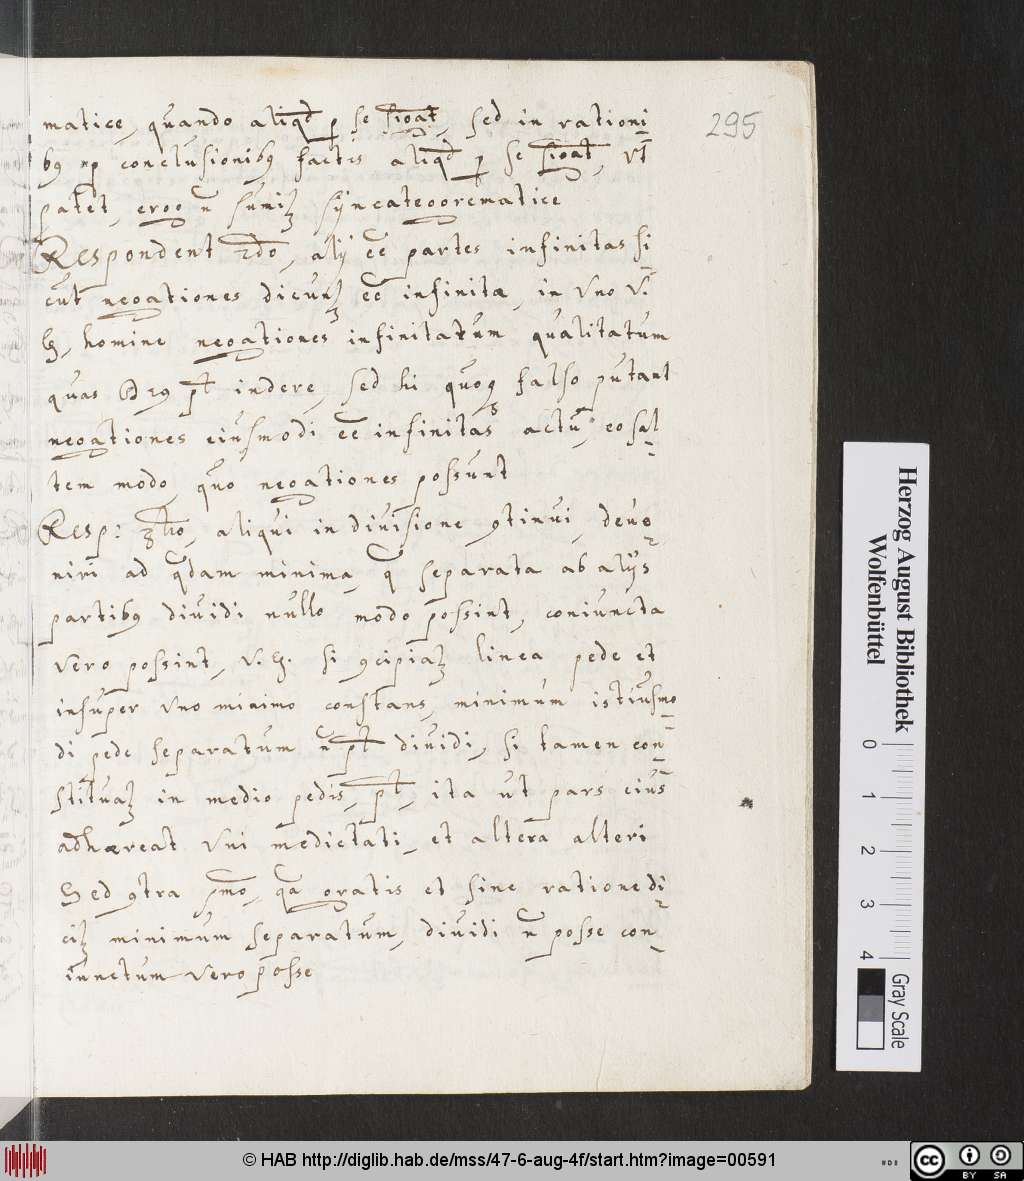 matice, quando aliqd p se sigat, sed in rationi-
bq p conclusionibq factis aliqd p se sigat, vt
patet, ergo n sumit syncategorematice
Respondent 2do, alij ee partes infinitas si-
cut negationes dicunt ee infinitæ, in uno v.
G, homine negationes infinitatum qualitatum
quas Deq pt indere, sed hi quoq falso putant
negationes eiusmodi ee infinitas actu, eo sal-
tem modo, quo negationes possunt
Resp: 3tio, aliqui in divisione 9tinui, deve-
niri ad qdam minima, q separata ab alijs
partibq dividi nullo modo possint, coniuncta
vero possint, v. G. si 9cipiat linea pede et
insuper uno minimo constans, minimum istiusmo-
di pede separatum n pt dividi, si tamen con-
stituat in medio pedis, pt, ita ut pars eius
adhæreat uni medietati, et altera alteri
Sed 9tra pmo, qa gratis et sine ratione di-
cit minimum separatum, dividi n posse con-
iunctum vero posse
295
Herzog August Bibliothek
Wolfenbüttel
0 1 2 3 4
Gray Scale
© HAB http://diglib.hab.de/mss/47-6-aug-4f/start.htm?image=00591
cc BY SA